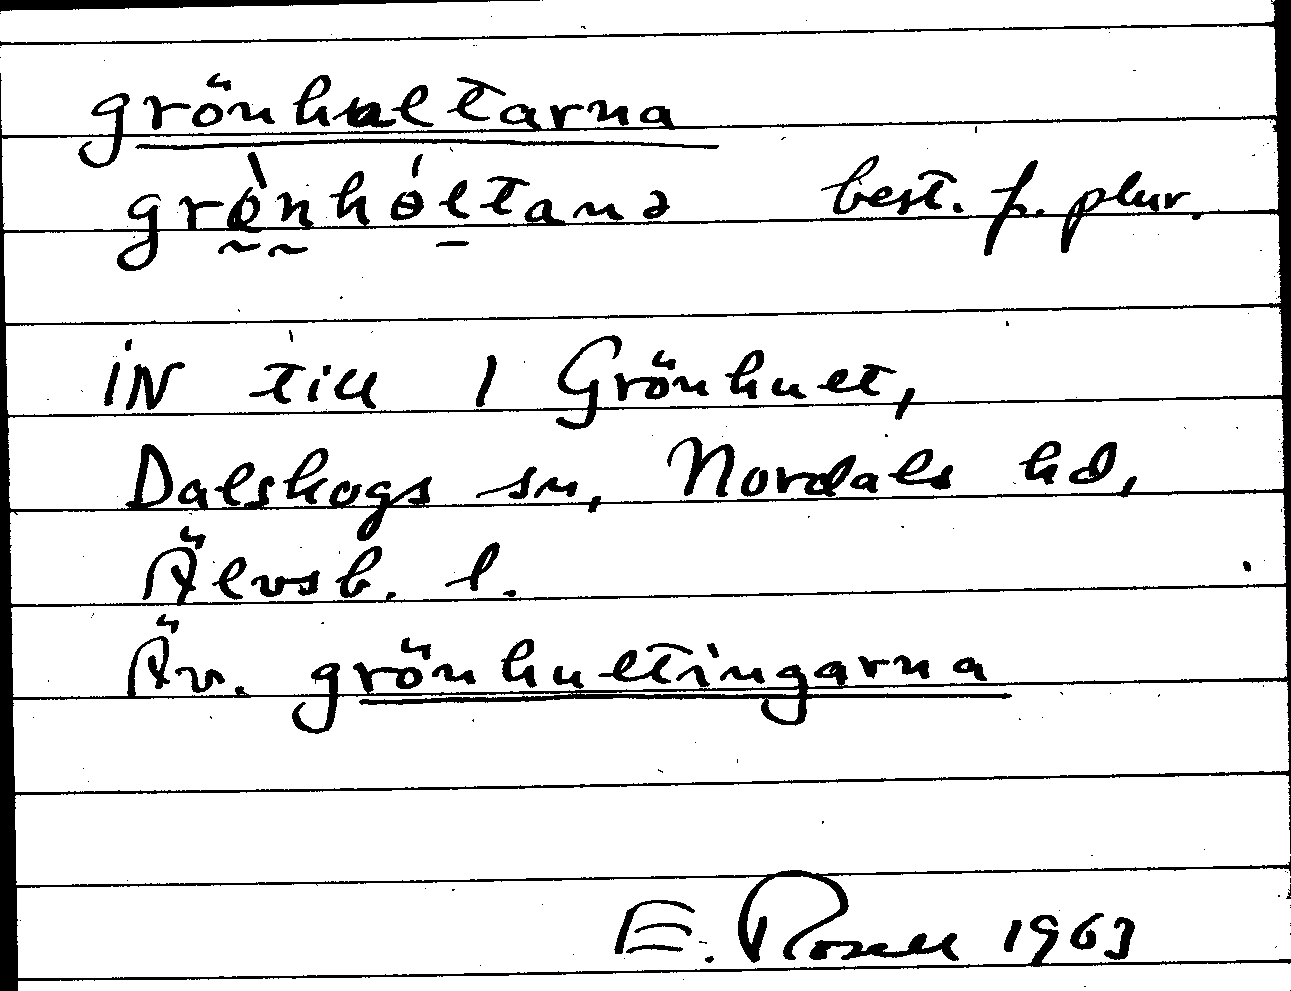 grönhultarna
grɵ̀nhɵ́ltanə best. f. plur.
iN till 1 Grönhult,
Dalskogs sn, Nordals hd,
Älvsb. l.
Äv. grönhultingarna
E. Rosell 1963